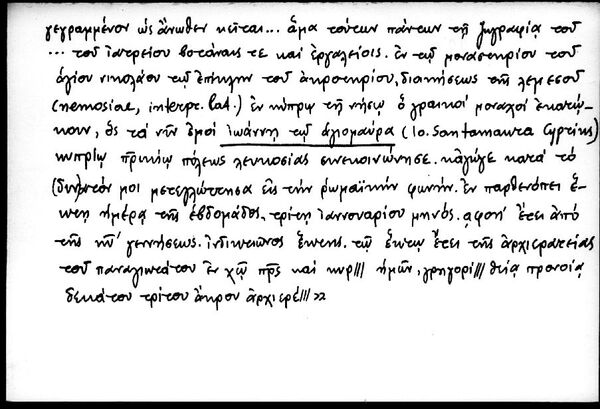 γεγραμμένον ὡς ἄνωθεν κεῖται... ἅμα τούτων πάντων τῇ ζωγραφίᾳ τοῦ
... τοῦ ἰατρείου βοτάναις τε καὶ ἐργαλείοις. ἐν τῷ μοναστηρίου τοῦ
ἁγίου νικολάου τῷ ἐπίκλην τοῦ ἀκροτηρίου, διοικήσεως τῆς λεμεσοῦ
(nemosiae, interpr. lat.) ἐν κύπρῳ τῇ νήσῳ ὃ γραικοὶ μοναχοὶ ἐκατῴ-
κουν, ὃς τὰ νῦν ἐμοὶ ἰωάννῃ τῷ ἁγιομαύρᾳ (Io. Santamaura Cyprius)
κυπρίῳ πόλεως λευκοσίας συνεκοινώνησε. κἀγώγε κατὰ τὸ
(δυν)ατόν μοι μετεγλώττησα εἰς τὴν ῥωμαϊκὴν φωνήν. ἐν παρθενόπει ἕ-
κτῃ ἡμέρᾳ τῆς ἑβδομάδος, τρίτῃ ἰαννουαρίου μηνός. ἔτει ἀπὸ
τῆς γεννήσεως. ἰνδικτιῶνος ἕκτης. τῷ ἕκτῳ ἔτει τῆς ἀρχιερατείας
τοῦ παναγιωτάτου ἐν χῷ πρς καὶ κυρ/// ἡμῶν, γρηγορί/// θείᾳ προνοίᾳ
δεκάτου τρίτου ἄκρου ἀρχιερέ/// »